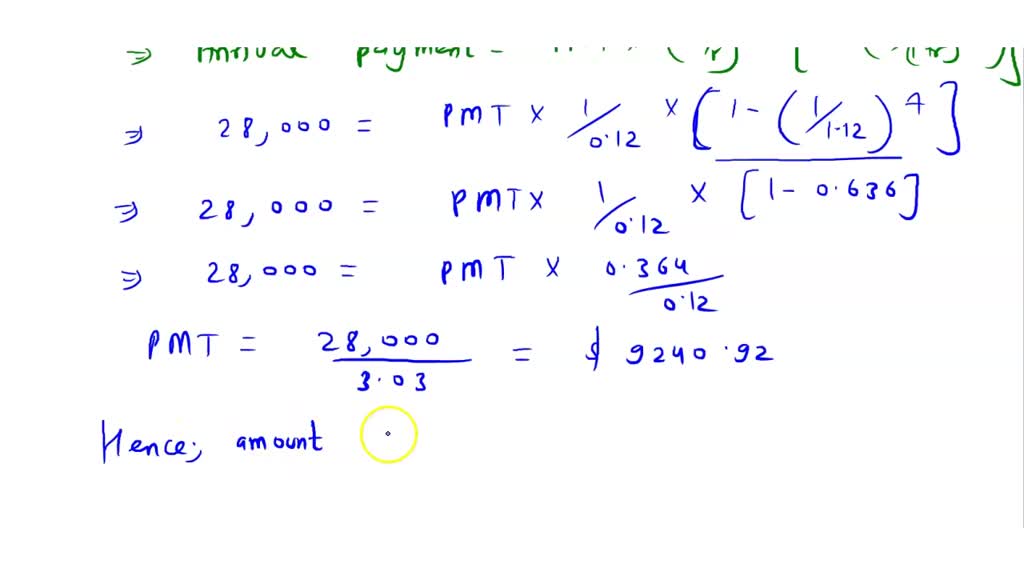 ⇒ Annual payment =
⇒ 28,000 = PMT × 1/0.12 × [1 - (1/1.12)^4]
⇒ 28,000 = PMT × 1/0.12 × [1 - 0.636]
⇒ 28,000 = PMT × 0.364/0.12
PMT = 28,000/3.03 = $ 9240.92
Hence; amount